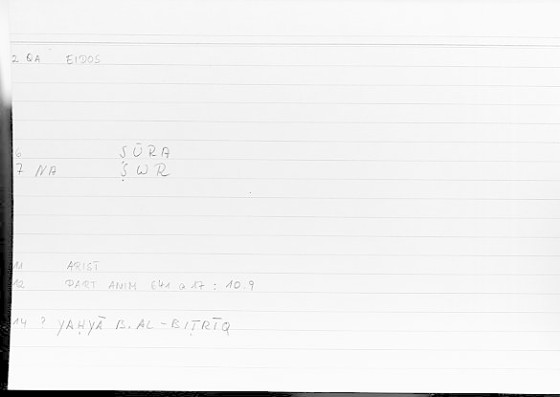 2 QA EIDOS
6 ṢŪRA
7 NA ṢWR
11 ARIST
12 PART ANIM 641 a 17 : 10.9
14 ? YAḤYĀ B. AL-BIṬRĪQ